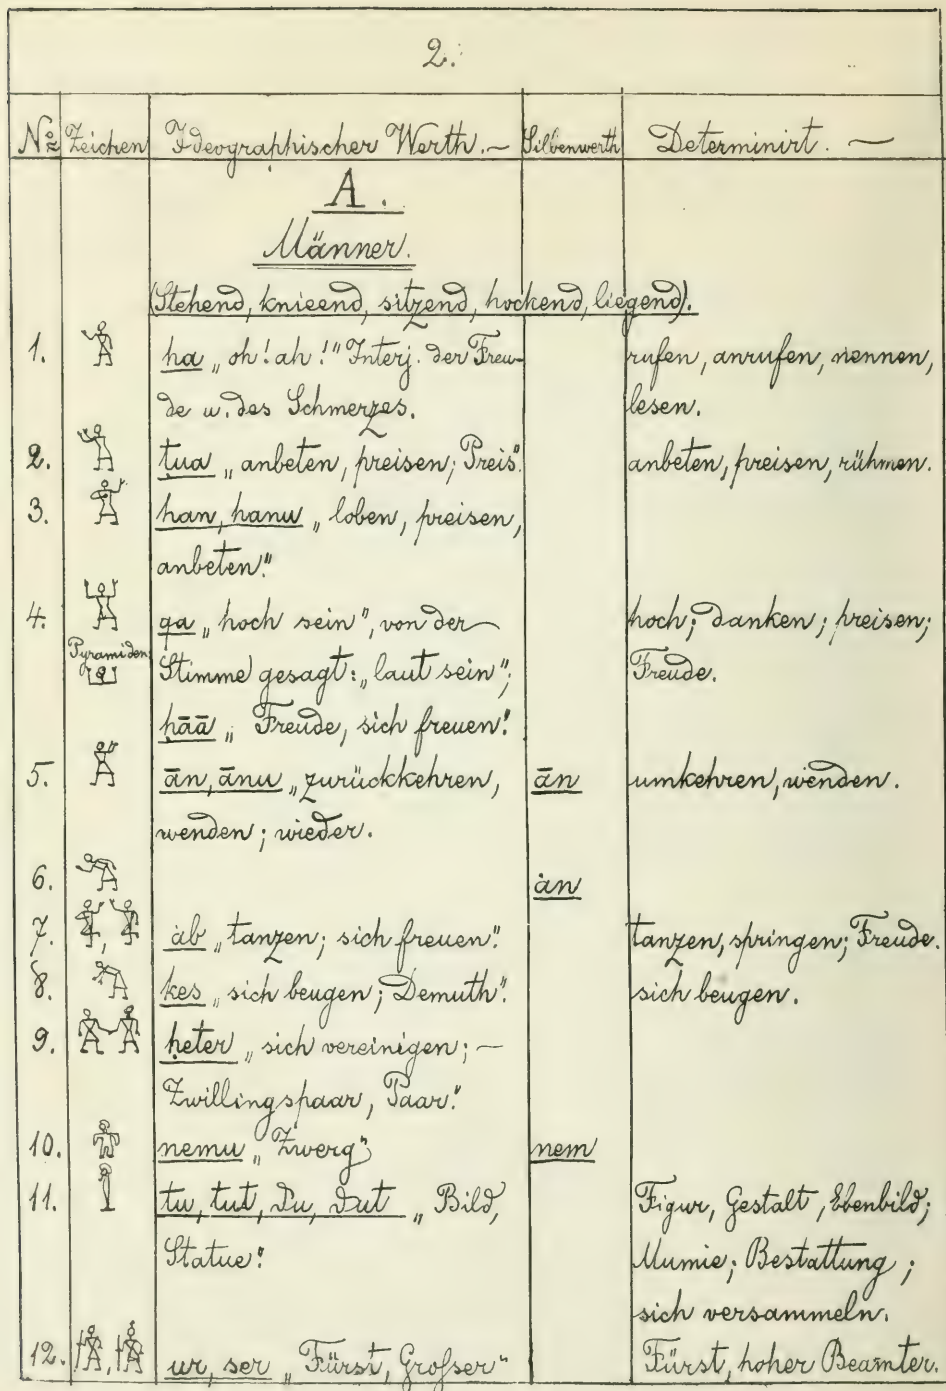 2.
No Zeichen Ideographischer Werth.— Silbenwerth Determinirt.—
A.
Männer.
(Stehend, knieend, sitzend, hockend, liegend).
1. ha „oh! ah!" Interj. der Freu- rufen, anrufen, nennen,
de u. des Schmerzes. lesen.
2. tua „anbeten, preisen; Preis". anbeten, preisen, rühmen.
3. han, hanu „loben, preisen,
anbeten."
4. qa „hoch sein", von der hoch; danken; preisen;
Pyramiden Stimme gesagt: „laut sein"; Freude.
hāā „Freude, sich freuen."
5. ān, ānu „zurückkehren, ān umkehren, wenden.
wenden; wieder.
6. ȧn
7. ȧb „tanzen; sich freuen". tanzen, springen; Freude.
8. kes „sich beugen; Demuth". sich beugen.
9. ḥeter „sich vereinigen; —
Zwillingspaar, Paar."
10. nemu „Zwerg" nem
11. tu, tut, du, dut „Bild, Figur, Gestalt, Ebenbild;
Statue." Mumie; Bestattung;
sich versammeln.
12. ur, ser „Fürst, Großer" Fürst, hoher Beamter.